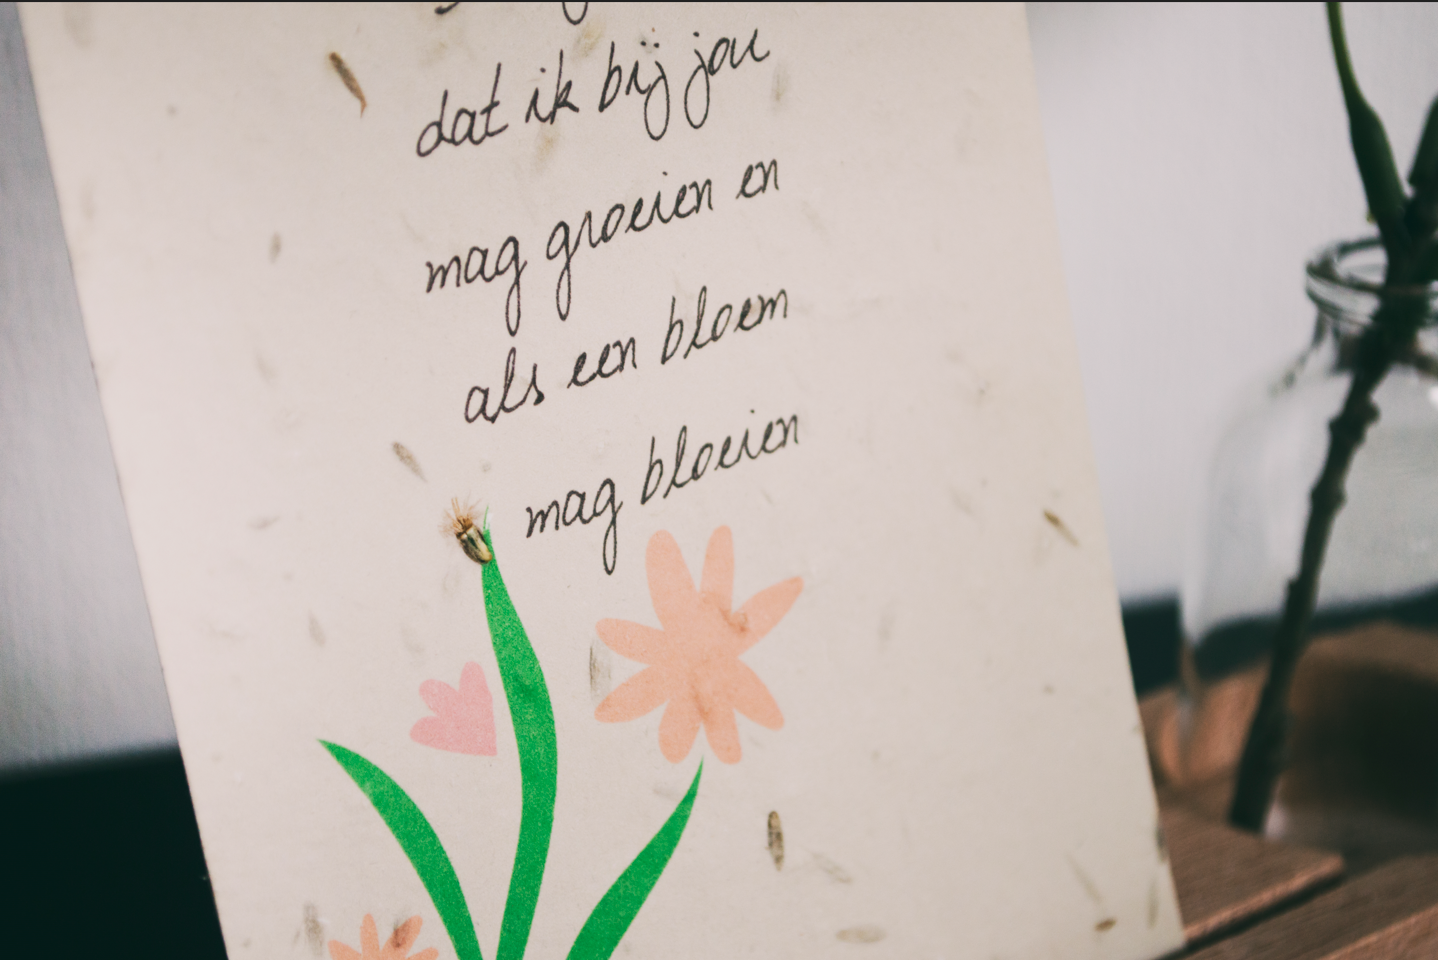 dat ik bij jou
mag groeien en
als een bloem
mag bloeien